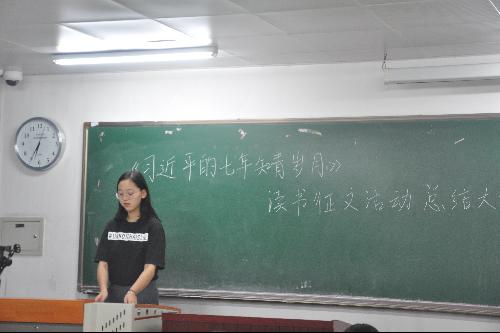 《习近平的七年知青岁月》
读书征文活动 总结大